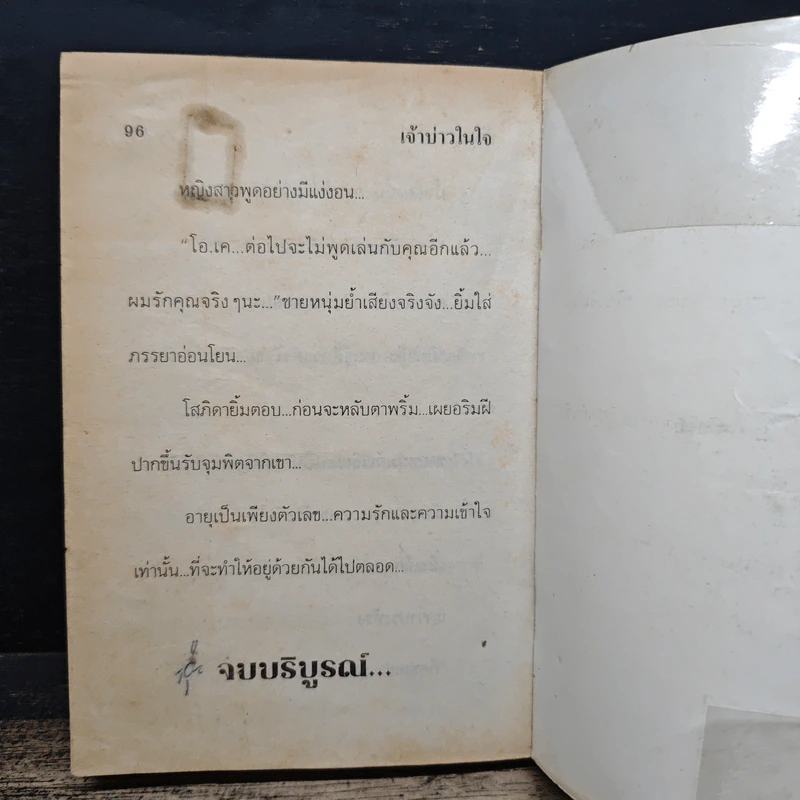 96
เจ้าบ่าวในใจ
หญิงสาวพูดอย่างมีแง่งอน...
"โอ.เค...ต่อไปจะไม่พูดเล่นกับคุณอีกแล้ว...
ผมรักคุณจริง ๆนะ..."ชายหนุ่มย้ำเสียงจริงจัง...ยิ้มใส่
ภรรยาอ่อนโยน...
โสภิดายิ้มตอบ...ก่อนจะหลับตาพริ้ม...เผยอริมฝี
ปากขึ้นรับจุมพิตจากเขา...
อายุเป็นเพียงตัวเลข...ความรักและความเข้าใจ
เท่านั้น...ที่จะทำให้อยู่ด้วยกันได้ไปตลอด...
จบบริบูรณ์...